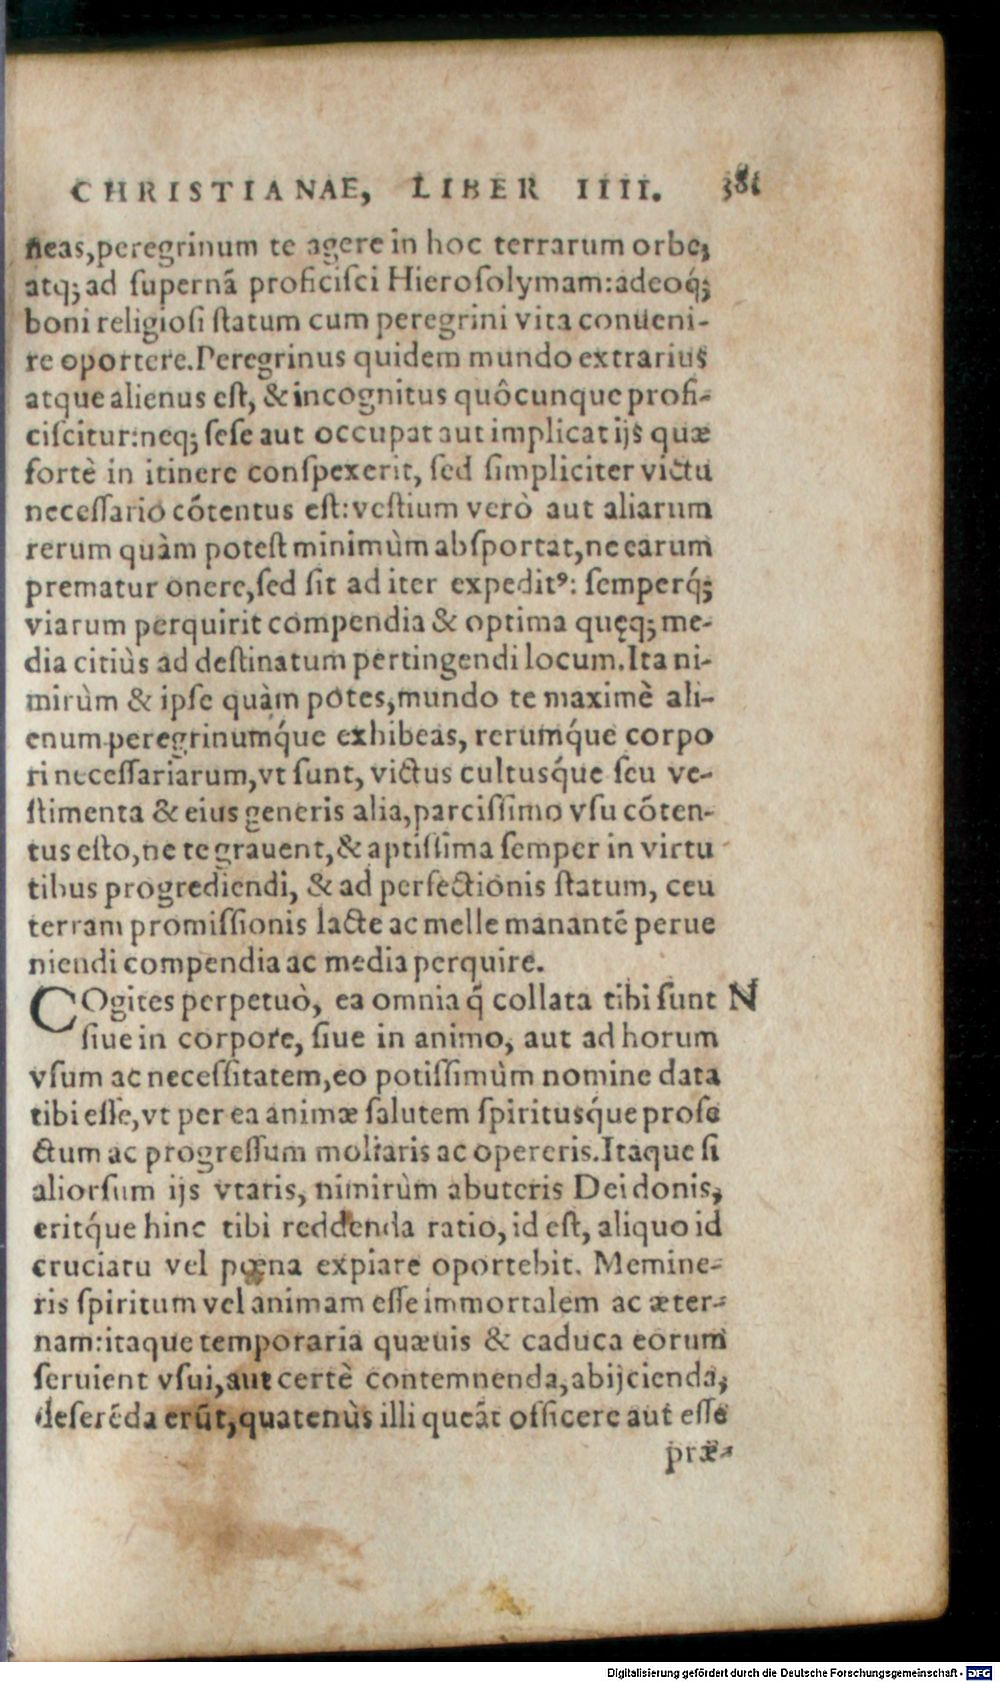 CHRISTIANAE, LIBER IIII. 381
neas,peregrinum te agere in hoc terrarum orbe,
atq; ad supernā proficisci Hierosolymam:adeoq́;
boni religiosi statum cum peregrini vita conueni-
re oportere.Peregrinus quidem mundo extrarius
atque alienus est, & incognitus quôcunque profi-
ciscitur:neq; sese aut occupat aut implicat ijs quæ
fortè in itinere conspexerit, sed simpliciter victu
necessario cōtentus est: vestium verò aut aliarum
rerum quàm potest minimùm absportat,ne earum
prematur onere,sed sit ad iter expedit⁹: semperq́;
viarum perquirit compendia & optima quęq; me-
dia citiùs ad destinatum pertingendi locum.Ita ni-
mirùm & ipse quàm potes,mundo te maximè ali-
enum peregrinumq́ue exhibeas, rerumq́ue corpo
ri necessariarum,vt sunt, victus cultusq́ue seu ve-
stimenta & eius generis alia,parcissimo vsu cōten-
tus esto,ne te grauent,& aptissima semper in virtu
tibus progrediendi, & ad perfectionis statum, ceu
terram promissionis lacte ac melle manantē perue
niendi compendia ac media perquire.
COgites perpetuò, ea omnia q̄ collata tibi sunt N
siue in corpore, siue in animo, aut ad horum
vsum ac necessitatem,eo potissimùm nomine data
tibi esse,vt per ea animæ salutem spiritusq́ue profe
ctum ac progressum moliaris ac opereris.Itaque si
aliorsum ijs vtaris, nimirùm abuteris Dei donis,
eritq́ue hinc tibi reddenda ratio, id est, aliquo id
cruciatu vel pœna expiare oportebit. Memine-
ris spiritum vel animam esse immortalem ac æter-
nam:itaque temporaria quæuis & caduca eorum
seruient vsui,aut certè contemnenda,abijcienda,
deserēda erūt,quatenùs illi queāt officere aut esse
præ-
Digitalisierung gefördert durch die Deutsche Forschungsgemeinschaft - DFG